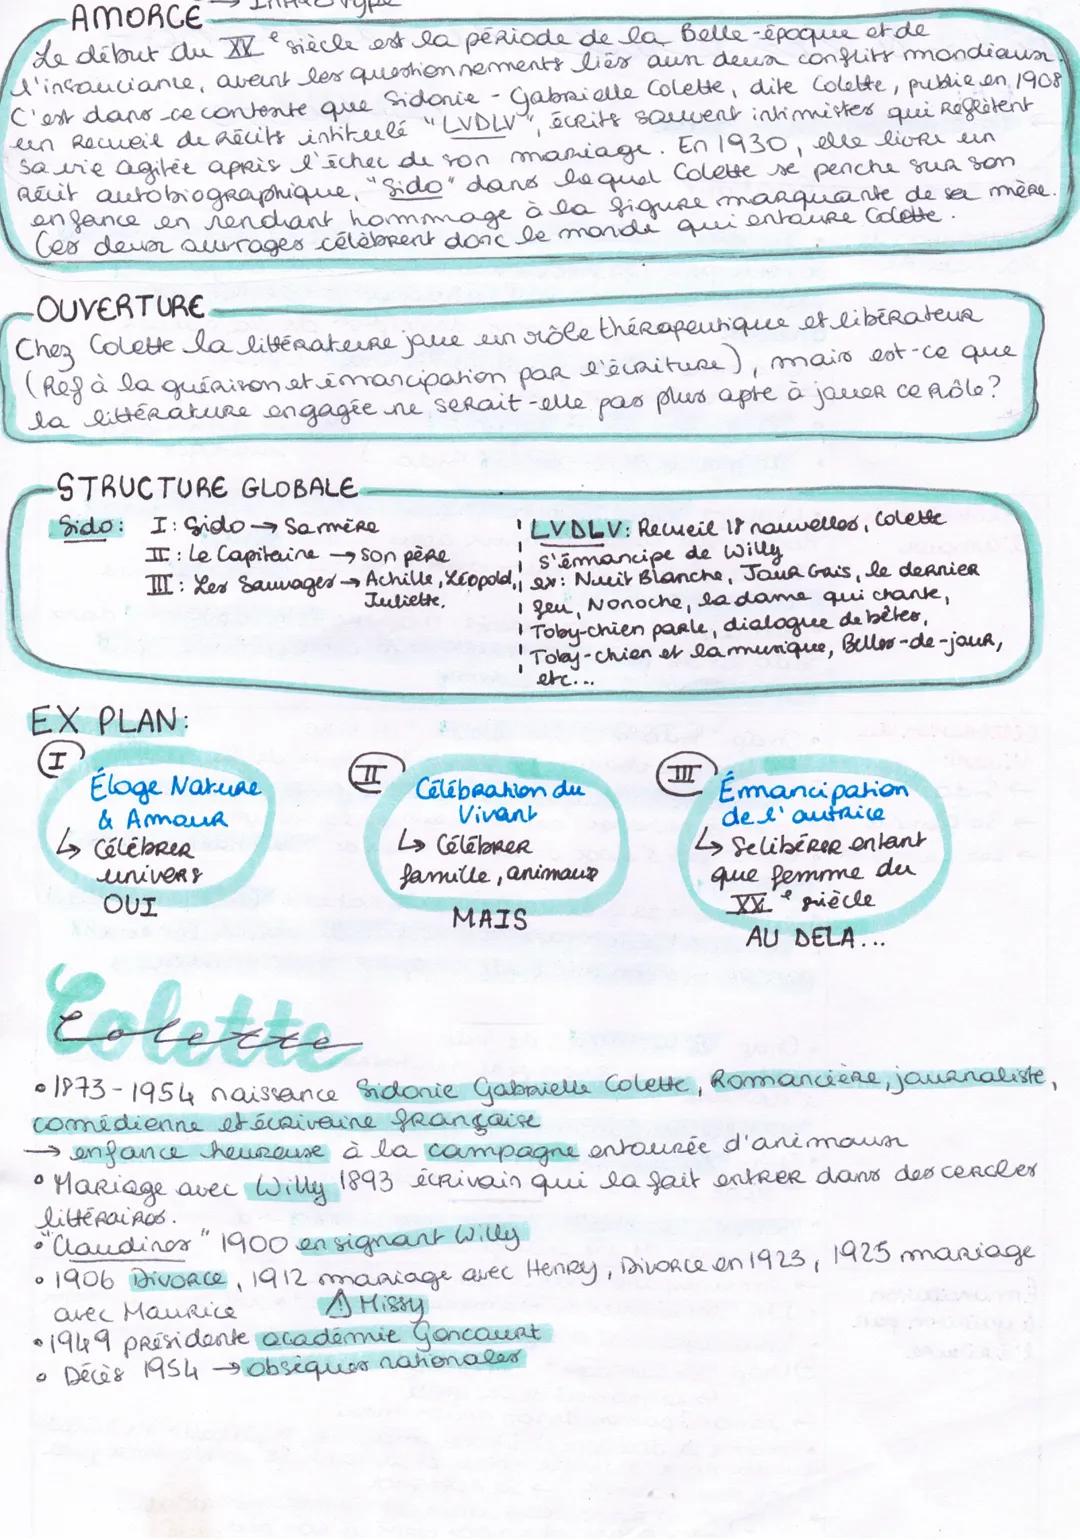 AMORCE → Intro type
Le début du XXe siècle est la période de la Belle-époque et de
l'insouciance, avant les questionnements liés aux deux conflits mondiaux.
C'est dans ce contexte que Sidonie-Gabrielle Colette, dite Colette, publie en 1908
un Recueil de Récits intitulé "LVDLV", écrits souvent intimistes qui Reflètent
sa vie agitée après l'échec de son mariage. En 1930, elle livre un
Récit autobiographique, "Sido" dans lequel Colette se penche sur son
enfance en rendant hommage à la figure marquante de sa mère.
Ces deux ouvrages célèbrent donc le monde qui entoure Colette.
OUVERTURE
Chez Colette la littérature joue un rôle thérapeutique et libérateur
(Ref à la guérison et émancipation par l'écriture), mais est-ce que
la littérature engagée ne serait-elle pas plus apte à jouer ce rôle?
STRUCTURE GLOBALE
Sido: I: Sido → Sa mère
II: Le Capitaine → son père
III: Les Sauvages → Achille, Léopold,
Juliette.
LVDLV: Recueil 18 nouvelles, Colette
s'émancipe de Willy
ex: Nuit Blanche, Jour Gris, le dernier
feu, Nonoche, la dame qui chante,
Toby-chien parle, dialogue de bêtes,
Toby-chien et la musique, Belles-de-jour,
etc...
EX PLAN:
I
Éloge Nature
& Amour
↳ Célébrer
univers
OUI
II
Célébration du
Vivant
↳ Célébrer
famille, animaux
MAIS
III
Émancipation
de l'autrice
↳ Se libérer entant
que femme du
XXe siècle
AU DELA...
Colette
• 1873-1954 naissance Sidonie Gabrielle Colette, Romancière, journaliste,
comédienne et écrivaine française
→ enfance heureuse à la campagne entourée d'animaux
• Mariage avec Willy 1893 écrivain qui la fait entrer dans des cercles
littéraires.
• "Claudines" 1900 en signant Willy
• 1906 Divorce, 1912 mariage avec Henry, Divorce en 1923, 1925 mariage
avec Maurice ⚠ Missy
• 1949 présidente académie Goncourt
• Décès 1954 → obsèques nationales